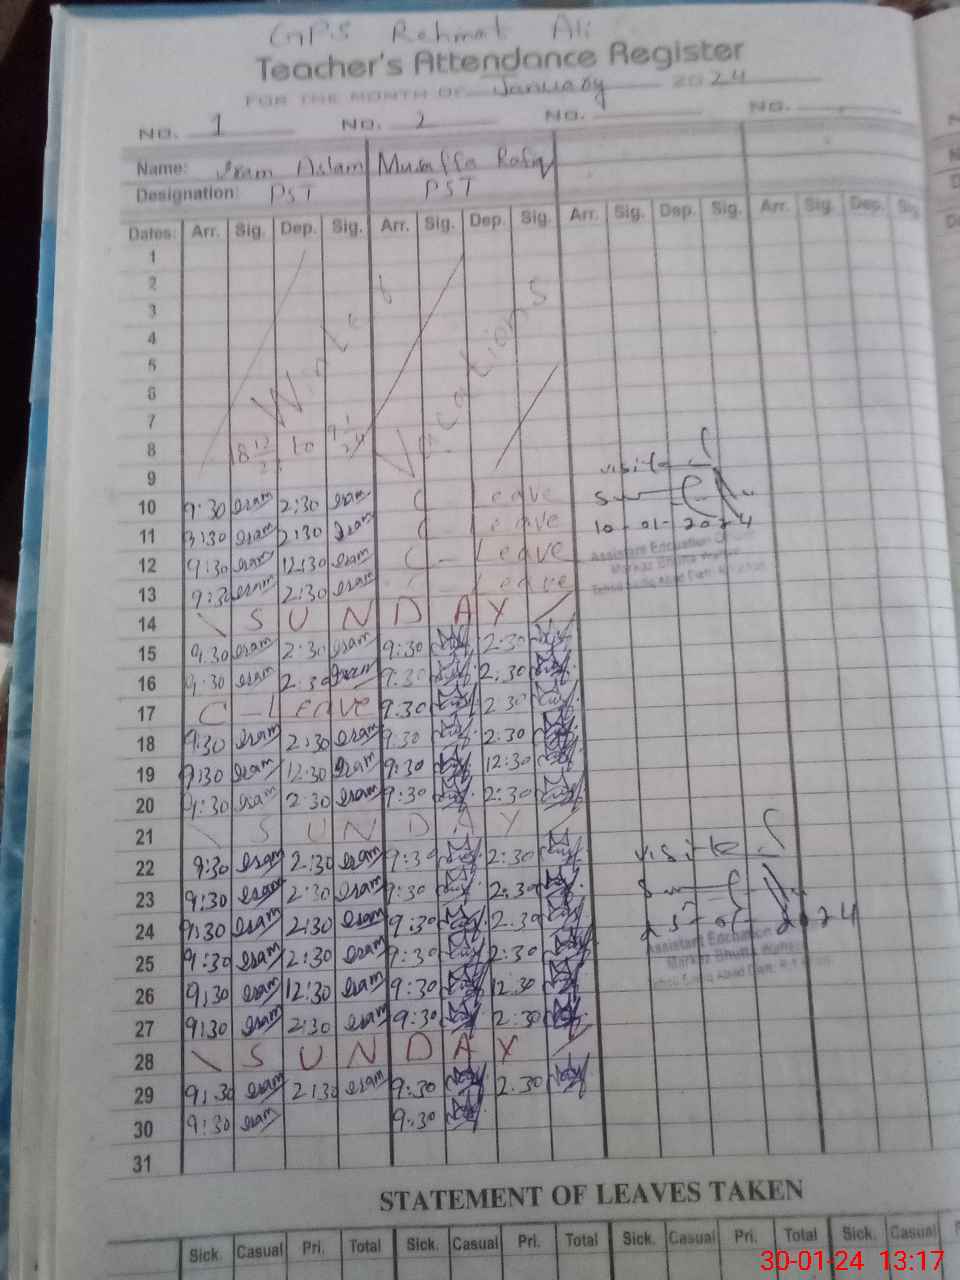 GPS Rehmat Ali
Teacher's Attendance Register
FOR THE MONTH OF January 2024
NO. 1 NO. 2 NO. NO.
Name: Iram Aslam Musaffa Rafiq
Designation: PST PST
Dates: Arr. Sig. Dep. Sig. Arr. Sig. Dep. Sig. Arr. Sig. Dep. Sig. Arr. Sig. Dep. Sig.
1
2
3
4
5
6
7
8
Winter Vacations
9
visit
10 9:30 Iram 2:30 Iram C Leave
10-01-2024
11 9:30 Iram 2:30 Iram C Leave
Assistant Education
12 9:30 Iram 12:30 Iram C - Leave
13 9:30 Iram 2:30 Iram C Leave
14 SUNDAY
15 9:30 Iram 2:30 Iram 9:30 2:30
16 9:30 Iram 2:30 Iram 9:30 2:30
17 C - Leave 9:30 2:30
18 9:30 Iram 2:30 Iram 9:30 2:30
19 9:30 Iram 12:30 Iram 9:30 12:30
20 9:30 Iram 2:30 Iram 9:30 2:30
21 SUNDAY
22 9:30 Iram 2:30 Iram 9:30 2:30
23 9:30 Iram 2:30 Iram 9:30 2:30
24 9:30 Iram 2:30 Iram 9:30 2:30
25-01-2024
Assistant Education
25 9:30 Iram 2:30 Iram 9:30 2:30
26 9:30 Iram 12:30 Iram 9:30 12:30
27 9:30 Iram 2:30 Iram 9:30 2:30
28 SUNDAY
29 9:30 Iram 2:30 Iram 9:30 2:30
30 9:30 Iram 9:30
31
STATEMENT OF LEAVES TAKEN
Sick. Casual Pri. Total Sick. Casual Pri. Total Sick. Casual Pri. Total Sick. Casual
30-01-24 13:17